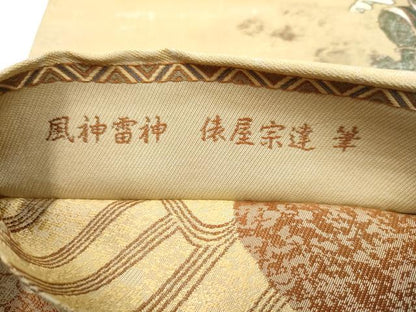 風神雷神 俵屋宗達 筆